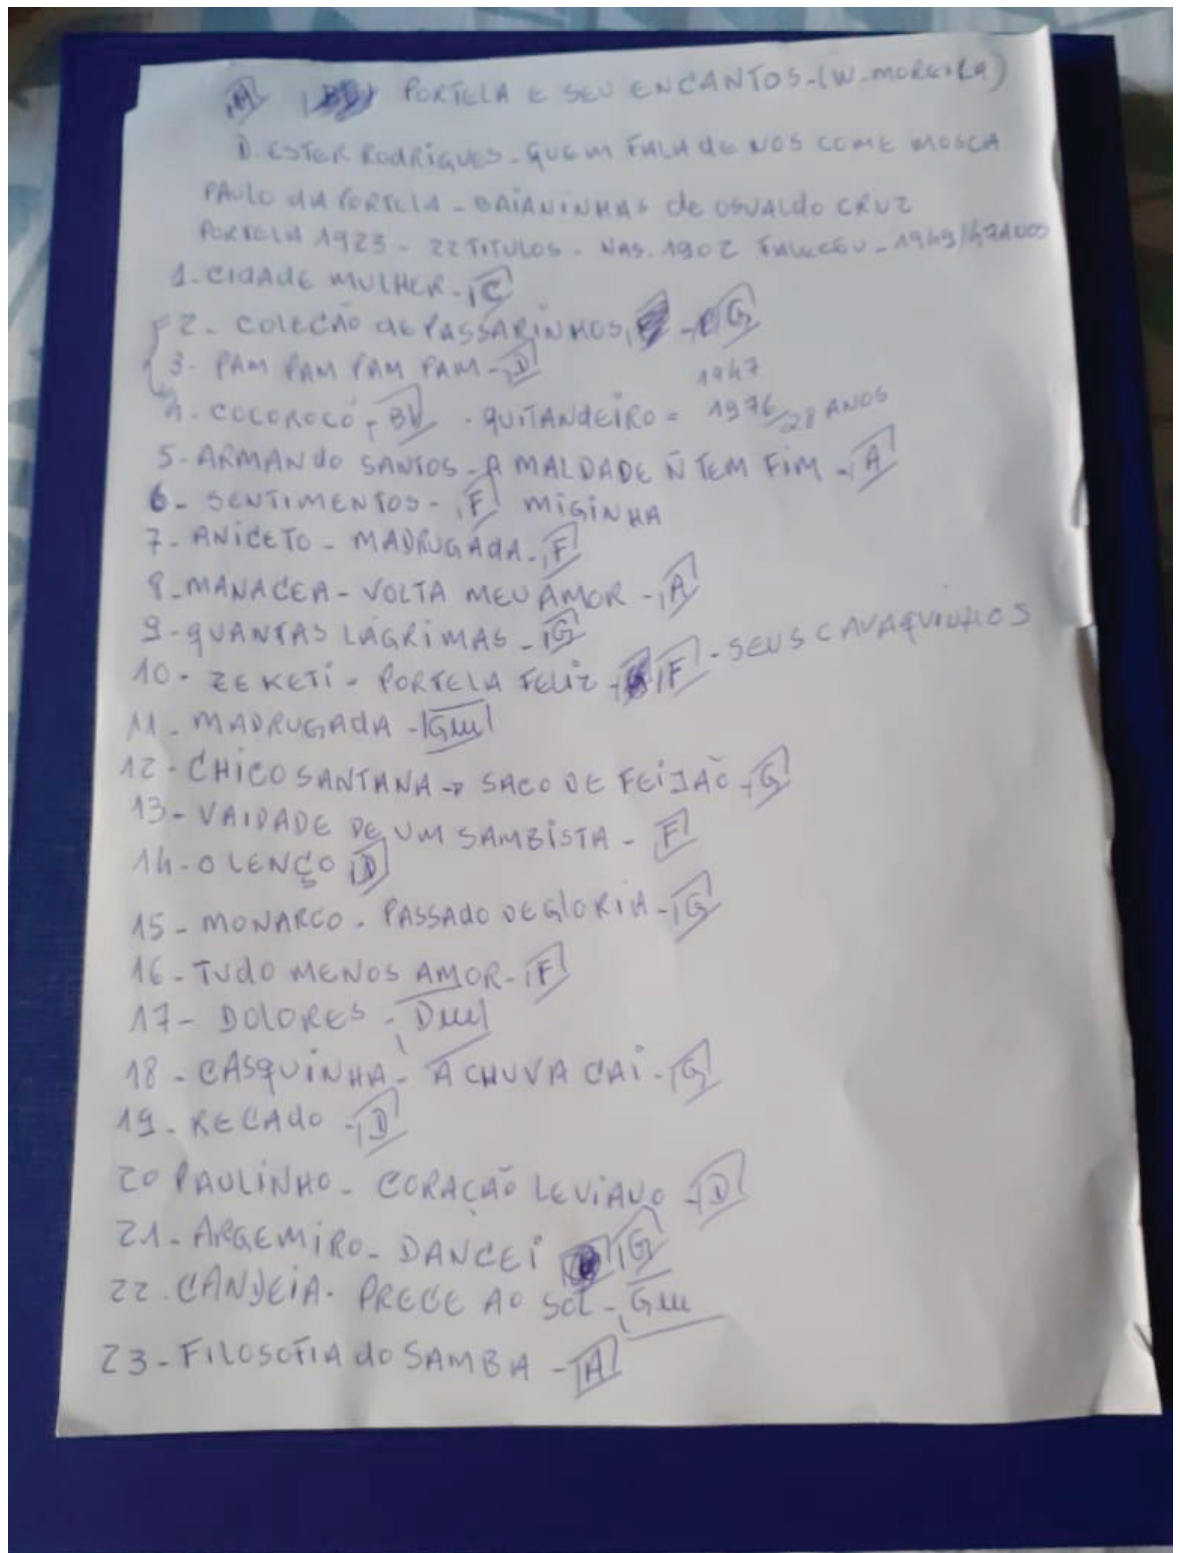 A PORTELA E SEU ENCANTOS-(W-MOREIRA)
D. ESTER RODRIGUES-QUEM FALA de NOS COME MOSCA
PAULO dA PORTELA-BAIANINHAS de OSVALDO CRUZ
PORTELA 1923-22 TITULOS-NAS. 1902 FALECEU-1949/47ANOS
1-CIDADE MULHER-C
2-COLECÃO de PASSARINHOS -G
3-PAM PAM PAM PAM-D
4-COCOROCÓ- . QUITANDEIRO = 1947
1976/28 ANOS
5-ARMANdo SANTOS-A MALDADE Ñ TEM FIM-A
6-SENTIMENTOS-F MIGINHA
7-ANICETO-MADRUGADA-F
8-MANACEA-VOLTA MEU AMOR-A
9-QUANTAS LÁGRIMAS-G
10-ZE KETI-PORTELA FELIZ F-SEUS CAVAQUINHOS
11-MADRUGADA-Gm
12-CHICO SANTANA→SACO DE FEIJÃO-G
13-VAIDADE DE UM SAMBISTA-F
14-O LENÇO D
15-MONARCO-PASSADO DE GLORIA-G
16-TUDO MENOS AMOR-F
17-DOLORES-Dm
18-CASQUINHA-A CHUVA CAI-G
19-RECADO-D
20 PAULINHO-CORAÇÃO LEVIANO-D
21-ARGEMIRO-DANCEI G
22-CANDEIA-PRECE AO SOL-Gm
23-FILOSOFIA do SAMBA-A